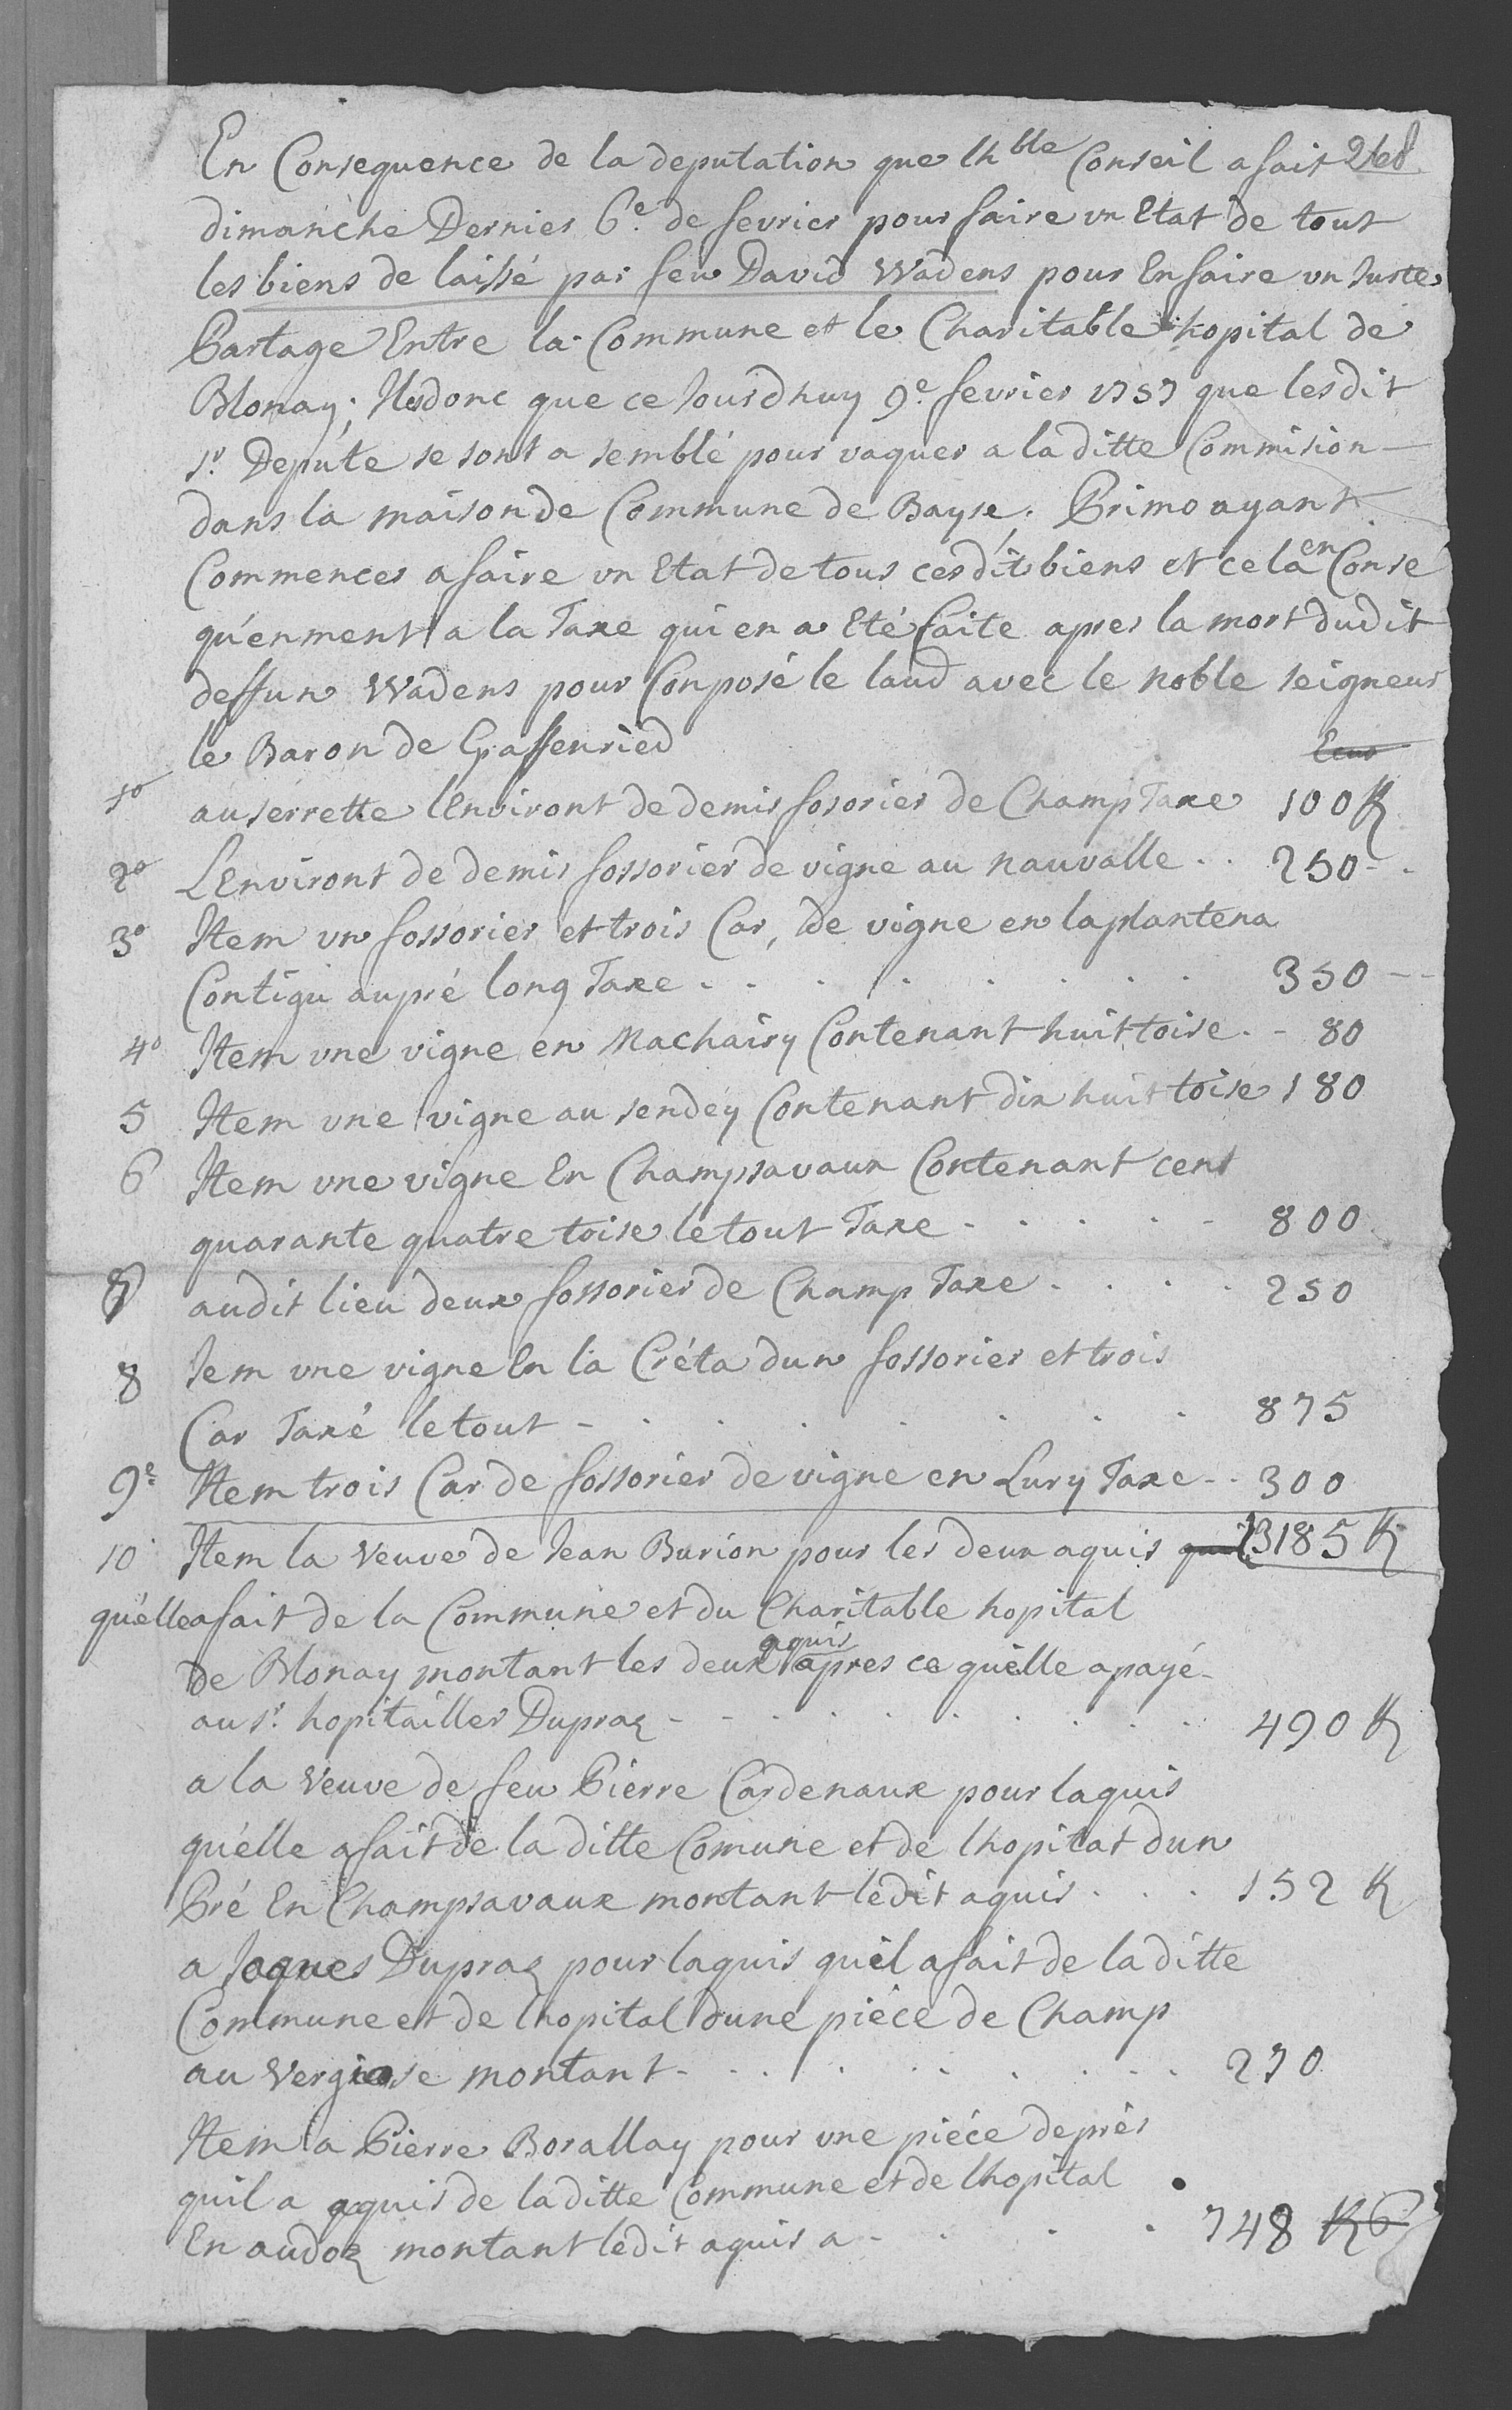 En Consequence de la deputation que lh^ble Conseil a fait
dimanche Dernier 6^e. de fevrier pour faire un Etat de tout
les biens de laissé par feu David Wadens pour En faire un Juste
Partage Entre la Commune et le Charitable hopital de
Blonay; donc que ce Jourdhuy 9^e. fevrier 1757 que lesdit
S^r. Depúte se sont a semblé pour vaquer a la ditte Commision
dans la maison de Commune de Bayse. Primo ayant
Commencer a faire un Etat de tous cesdit biens et cela en Consé
quenment a la Taxe qui en a Eté faite apres la mort dudit
deffun Wadens pour Conposé le laud avec le noble seigneur
le Baron de Graffenried
1^o au serrette lEnviront de demis fosorier de Champ Taxe 100 K
2^o LEnviront de demis fossorier de vigne au nauvalle . . 250 - .
3^o Item un fossorier et trois Car, de vigne en laplantena
Contigu aupré long Taxe . . . . . . . . 350 - -
4^o Item une vigne en Machairy Contenant huit toise . - 80
5 Item une vigne au sendey Contenant dix huit toise 180
6 Item une vigne En Champsavaux Contenant cent
quarante quatre toise le tout Taxe . . . . . 800
7 audit lieu deux fossorier de Champ Taxe . . . . 250
8 Iem une vigne En la Créta dun fossorier et trois
Car Taxé le tout - . . . . . . . 875
9^e Item trois Car de fossorier de vigne en Lury Taxe - - 300
3185 K
10 Item la Veuve de Jean Burion pour les deux aquis
quelle a fait de la Commune et du Charitable hopital
de Blonay montant les deux aquis apres ce quelle a payé
au s^r. hopitailler Dupraz - - . . . . . . 490 K
a la Veuve de feu Pierre Cardenaux pour laquis
quelle a fait de la ditte Comune et de lhopital dun
Pré En Champsavaux montant ledit aquis . . . 152 K
a Jaques Dupraz pour laquis quil a fait de la ditte
Commune et de lhopital dune piéce de Champ
au montant - . . . . . . . 270
Item a Pierre Borallay pour une piéce de prés
quil a aquis de la ditte Commune et de lhopital
En audoz montant ledit aquis a - . . . 748